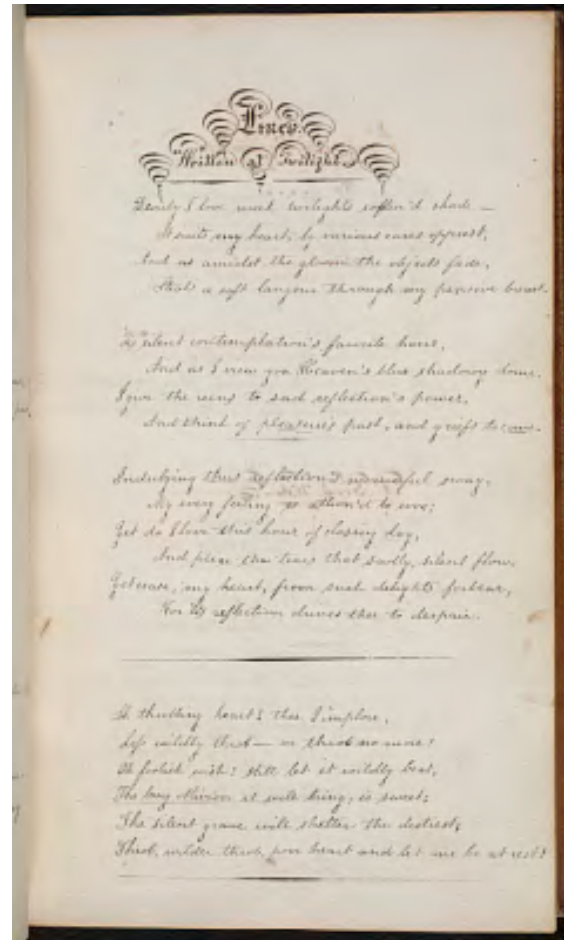 Lines.
"Written at Twilight."
Dearly I love until twilights soften'd shade —
It suits my heart, by various cares opprest,
And as amidst the gloom the objects fade,
Steals a soft langour through my pensive breast.
'Tis silent contemplation's favorite hour,
And as I view yon Heaven's blue shadowy dome.
I give the reins to sad reflection's power,
And think of pleasures past, and griefs to come.
Indulging thus reflection's mournful sway,
My every feeling is attun'd to woe;
Yet do I love this hour of closing day,
And prize the tears that sadly, silent flow.
Yet cease, my heart, from such delights forbear,
For reflection drives thee to despair.
Oh throbbing heart! thee I implore,
Less wildly throb — or throb no more!
Oh foolish wish! still let it wildly beat,
The long oblivion it will bring, is sweet;
The silent grave will shelter the distrest,
Throb, wilder throb, poor heart and let me be at rest!